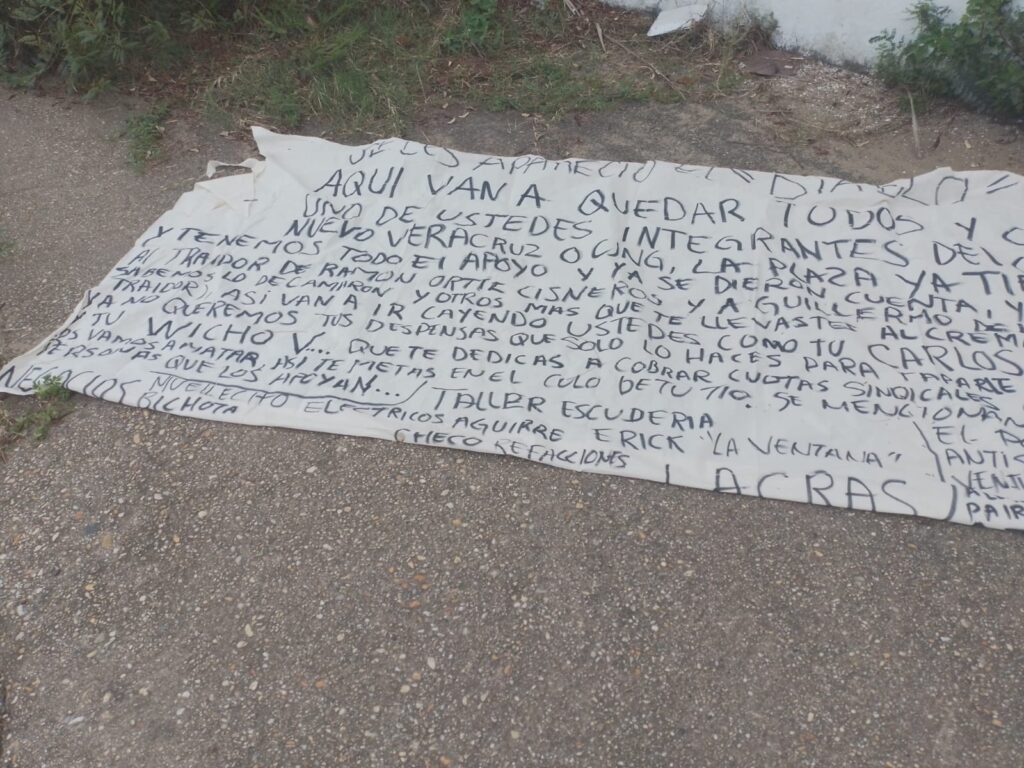 APARECIO EL "DIABLO"
AQUI VAN A QUEDAR TODOS Y C
UNO DE USTEDES INTEGRANTES DEL
NUEVO VERACRUZ O CJNG, LA PLAZA YA TIE
Y TENEMOS TODO El APOYO Y YA SE DIERON CUENTA, Y
AL TRAIDOR DE RAMON ORTIE CISNEROS Y A GUILLERMO DE
SABEMOS LO DE CAMARON, Y OTROS MAS QUE TE LLEVASTE AL CREMA
TRAIDOR, ASI VAN A IR CAYENDO USTEDES COMO TU CARLOS
YA NO QUEREMOS TUS DESPENSAS QUE SOLO LO HACES PARA TAPARTE
Y TU WICHO V... QUE TE DEDICAS A COBRAR CUOTAS SINDICALES
VAMOS A MATAR, ASI TE METAS EN EL CULO DE TU TIO. SE MENCIONA
PERSONAS QUE LOS APOYAN...
NEGOCIOS MUELLECITO TALLER ESCUDERIA
BICHOTA ELECTRICOS AGUIRRE ERICK "LA VENTANA"
CHECO REFACCIONES
LACRAS
EL
ANTIG
VENT
AL
PAIR